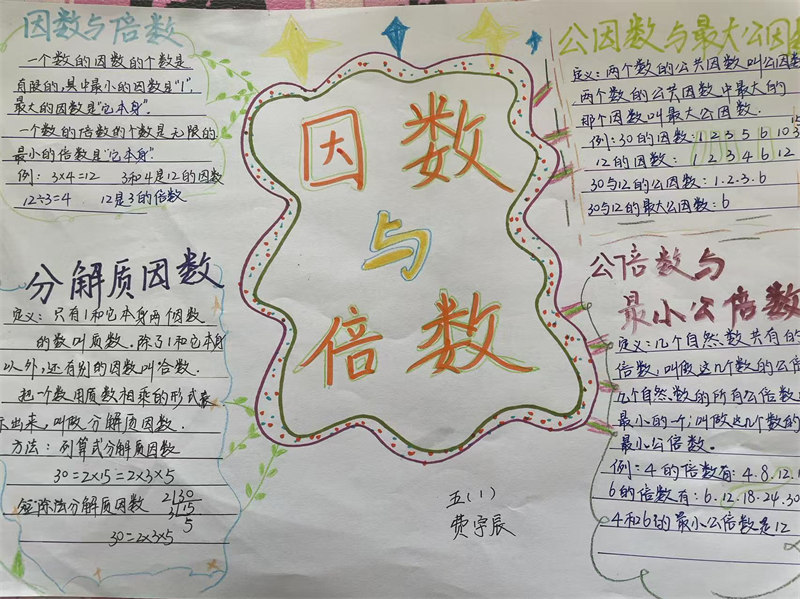 因数与倍数
一个数的因数的个数是
有限的,其中最小的因数是"1",
最大的因数是"它本身".
一个数的倍数的个数是无限的
最小的倍数是"它本身"
例: 3×4=12 3和4是12的因数
12÷3=4 12是3的倍数
分解质因数
定义: 只有1和它本身两个因数
的数叫质数.除了1和它本身
以外,还有别的因数叫合数.
把一个数用质数相乘的形式表
示出来,叫做分解质因数.
方法: 列算式分解质因数
30=2×15=2×3×5
短除法分解质因数 2 30
3 15
5
30=2×3×5
因数
与
倍数
五(1)
费宇辰
公因数与最大公因数
定义:两个数的公共因数叫公因数
两个数的公共因数中最大的
那个因数叫最大公因数.
例:30的因数: 1 2 3 5 6 10
12的因数: 1 2 3 4 6 12
30与12的公因数:1.2.3.6
30与12的最大公因数:6
公倍数与
最小公倍数
定义:几个自然数共有的
倍数,叫做这几个数的公倍
几个自然数的所有公倍数
最小的一个;叫做这几个数的
最小公倍数。
例: 4的倍数有: 4.8.12.1
6的倍数有: 6.12.18.24.30
4和6的最小公倍数是12